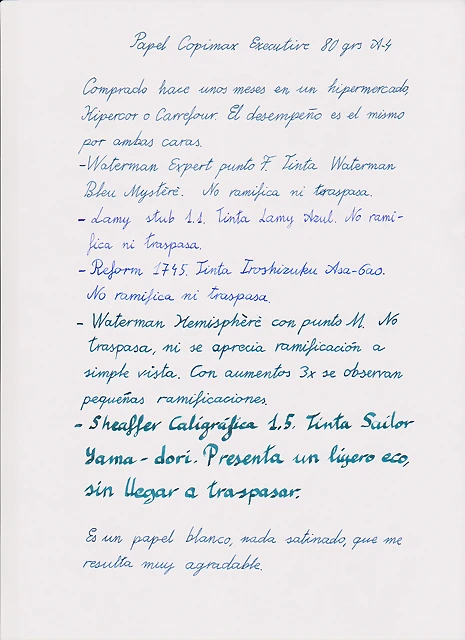 Papel Copimax Executive 80 grs A-4
Comprado hace unos meses en un hipermercado,
Hipercor o Carrefour. El desempeño es el mismo
por ambas caras.
-Waterman Expert punto F. Tinta Waterman
Bleu Mystère. No ramifica ni traspasa.
- Lamy stub 1.1. Tinta Lamy Azul. No rami-
fica ni traspasa.
- Reform 1745. Tinta Iroshizuku Asa-Gao.
No ramifica ni traspasa.
- Waterman Hemisphèrè con punto M. No
traspasa, ni se aprecia ramificación a
simple vista. Con aumentos 3x se observan
pequeñas ramificaciones.
- Sheaffer Caligráfica 1.5. Tinta Sailor
Yama-dori. Presenta un ligero eco,
sin llegar a traspasar.
Es un papel blanco, nada satinado, que me
resulta muy agradable.